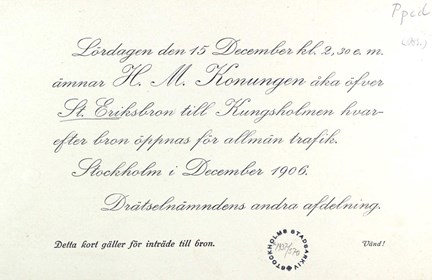 Ppcd
Lördagen den 15 December kl. 2,30 e. m.
ämnar H. M. Konungen åka öfver
St. Eriksbron till Kungsholmen hvar-
efter bron öppnas för allmän trafik.
Stockholm i December 1906.
Drätselnämndens andra afdelning.
Detta kort gäller för inträde till bron.
STOCKHOLMS STADSARKIV
Vänd!